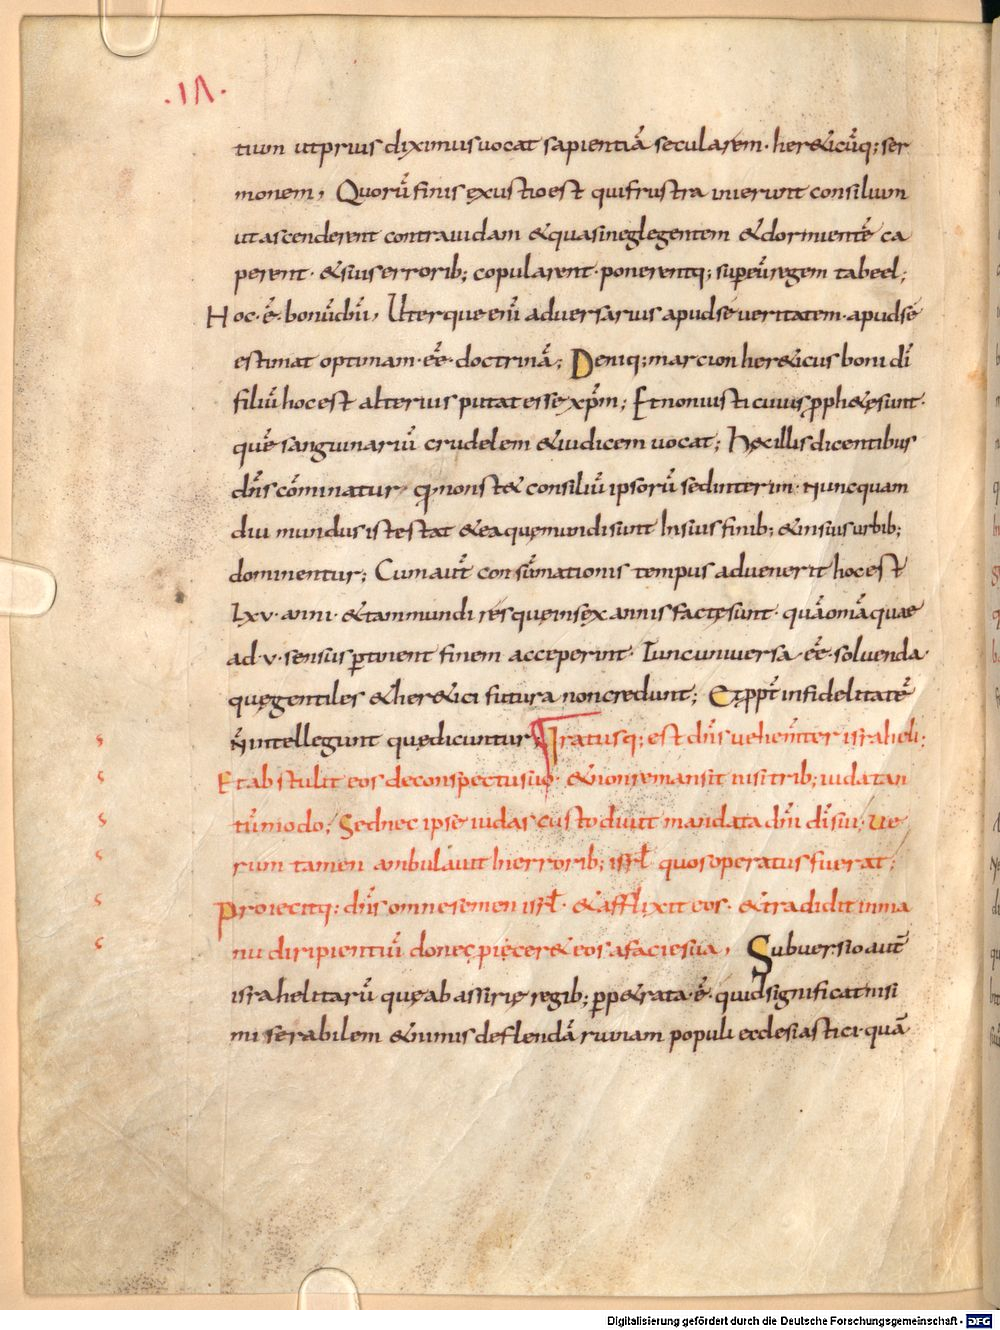 ·VI·
tium ut prius diximus vocat sapientiā secularem· her&icūq; ser
monem, Quorū finis exustio est qui frustra inierunt consilium
ut ascenderent contra iudam &quasi neglegentem &dormientē ca
perent· &suis errorib; copularent· ponerentq; super eū regem tabeel;
Hoc·ē· bonū dm̄, Uterque enī adversarius apud se veritatem· apud sē
estimat optimam·eē·doctrinā; Deniq; marcion her&icus boni dī
filiū hoc est alterius putat esse xp̄m; Et non iusti cuius pph&ę sunt·
quē sanguinariū crudelem &iudicem vocat; Hęc illis dicentibus
dn̄s cōminatur, qd non st& consiliū ipsorū sed interim· Nuncquam
diu mundus iste stat &ea quę mundi sunt In suis finib; &in suis urbib;
dominentur; Cum aut̄ consūmationis tempus advenerit hoc est
lxv· anni· &tam mundi res quę in sex annis factę sunt· quā omā quae
ad·v·sensus ptinent finem acceperint· Tunc universa·eē·solvenda·
quę gentiles &her&ici futura non credunt; Et ppt̄ infidelitatē
n̄ intellegunt quę dicuntur; Iratusq; est dn̄s vehem̄ter israheli·
Et abstulit eos de conspectu suo· &non remansit nisi trib; iuda tan
tūmodo; Sed nec ipse iudas custodivit mandata dn̄i dī sui· Ve
rum tamen ambulavit In errorib; isrl̄ quos operatus fuerat;
Proiecitq; dn̄s omne semen isrl̄· &afflixit eos· &tradidit in ma
nu diripientiū donec piecer& eos a facie sua, Subversio aut̄
israhelitarū quę ab assirię regib; pp&rata·ē· quid significat nisi
miserabilem &nimis deflendā ruinam populi ecclesiastici· quā
Digitalisierung gefördert durch die Deutsche Forschungsgemeinschaft - DFG